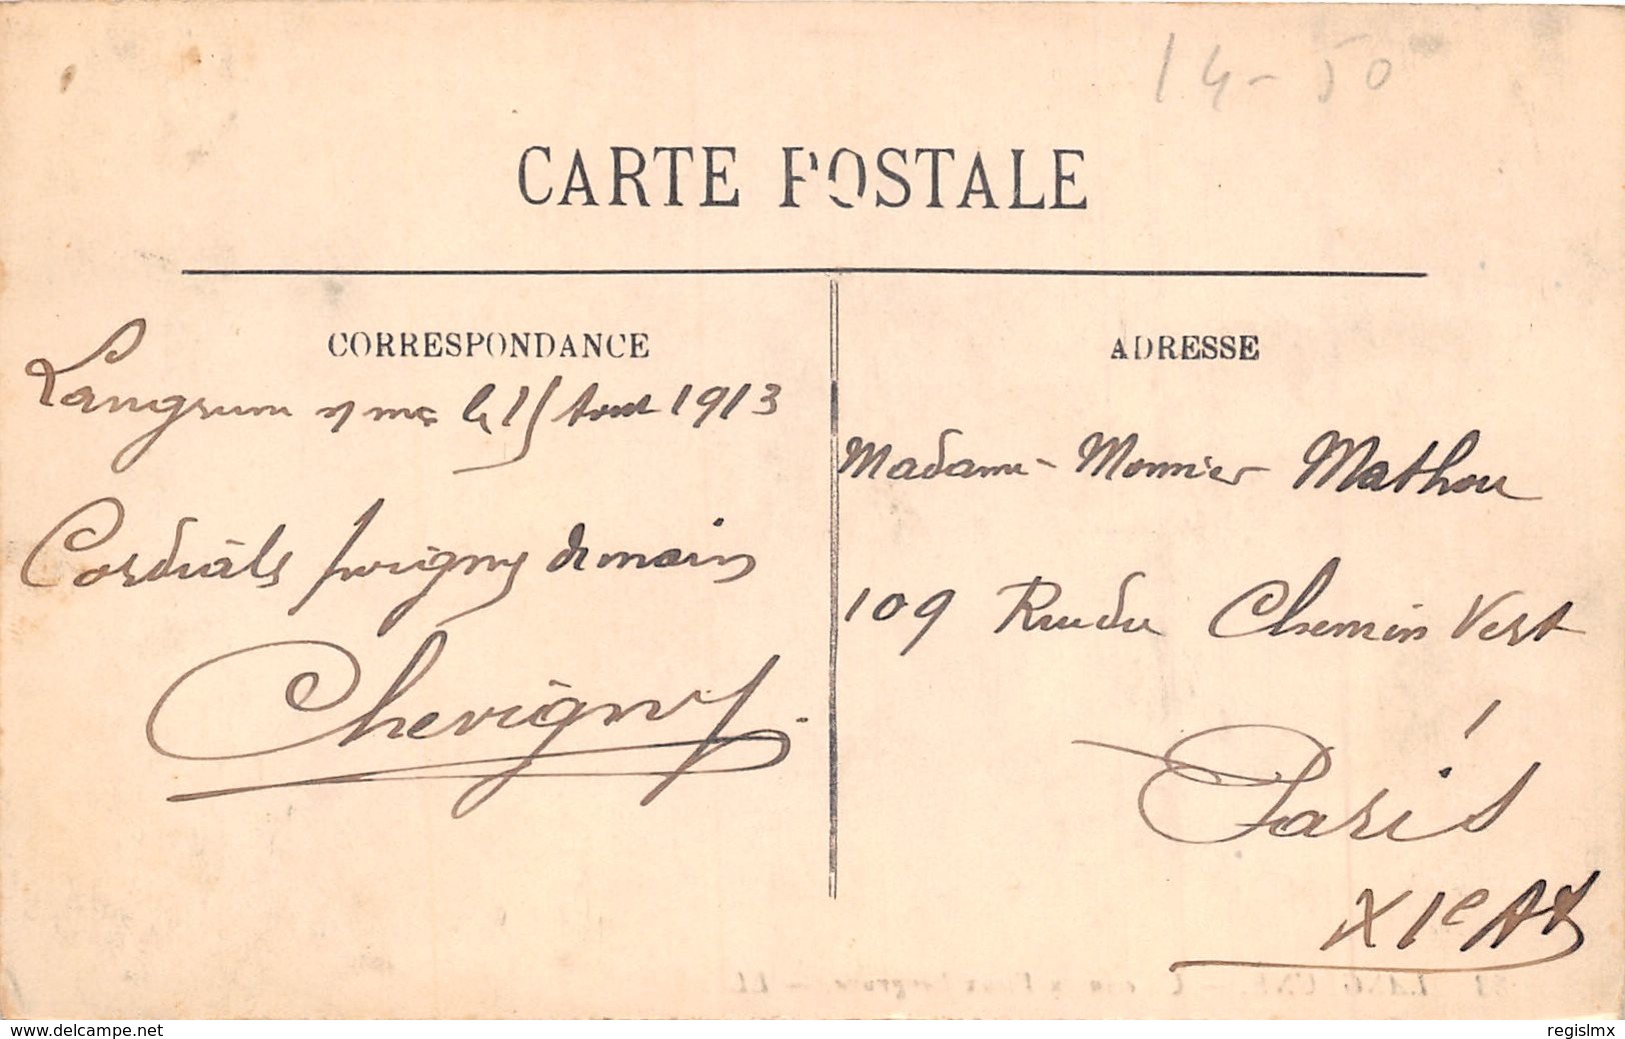 14-50
CARTE POSTALE
CORRESPONDANCE
Langrune s/ mer le 15 Aout 1913
Cordials poignes de mains
Chevigny
ADRESSE
Madame Monnier Mathou
109 Rue du Chemin Vert
Paris
XIe Ar
delcampe.net
regislmx